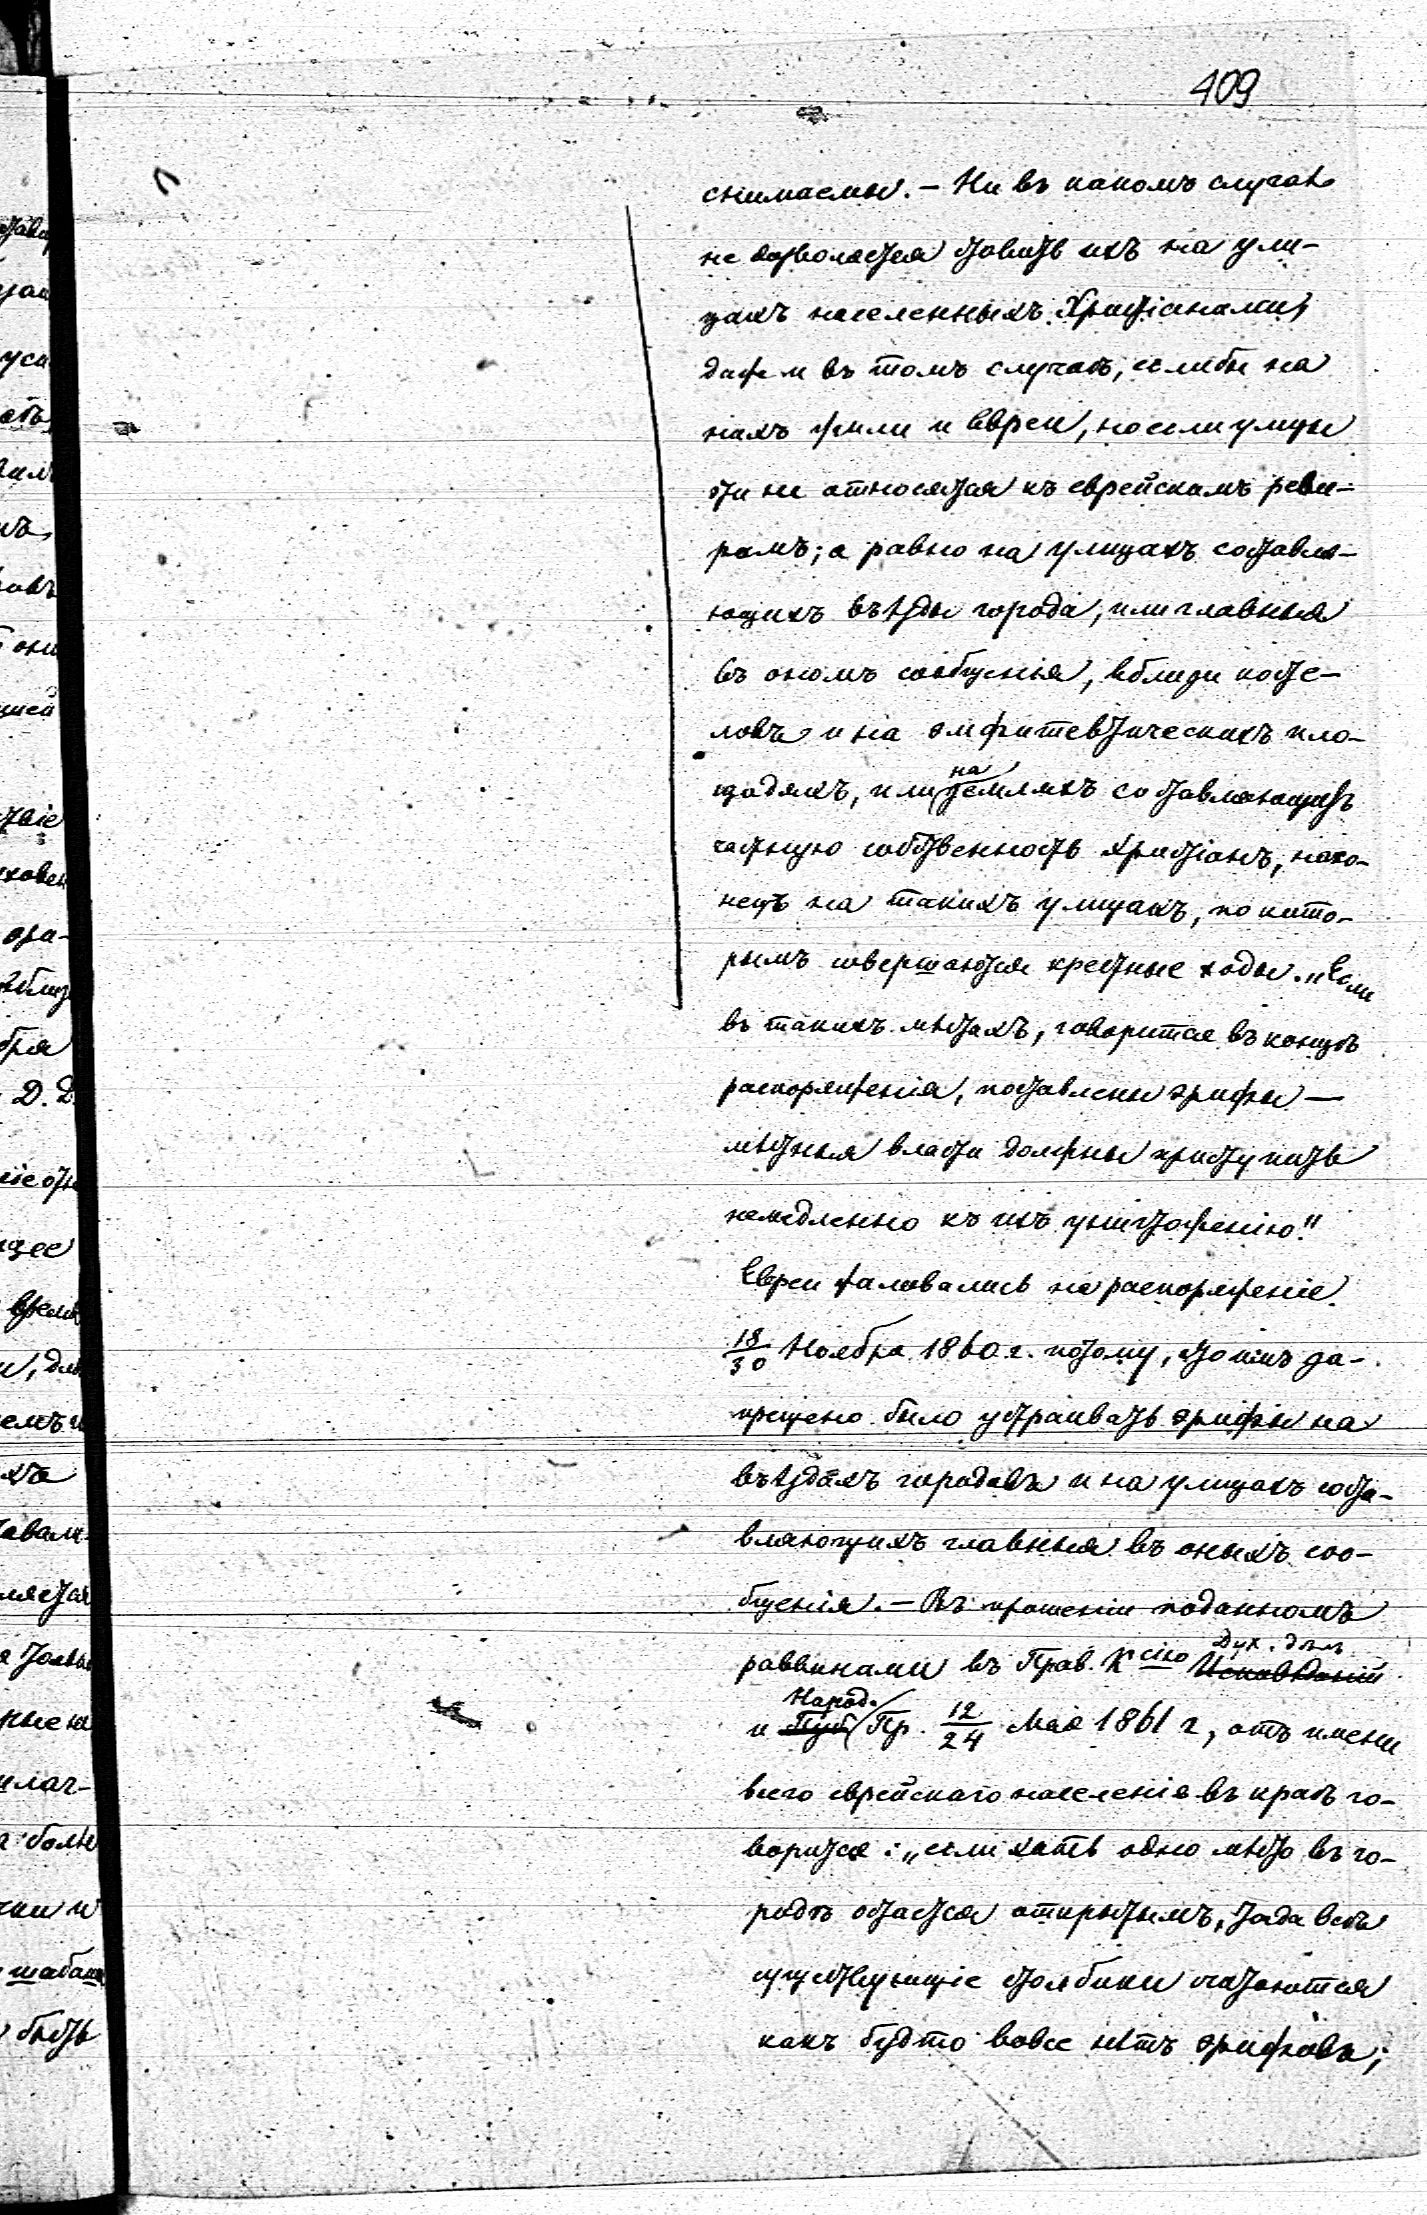 409
снимаемы. — Ни въ какомъ случаѣ
не дозволяется ставить ихъ на ули-
цахъ населенныхъ Христіанами,
даже и въ томъ случаѣ, еслибы на
нихъ жили и евреи, но если улицы
эти не относятся къ еврейскимъ реви-
рамъ; а равно на улицахъ составля-
ющихъ въѣзды города, или главныя
въ ономъ сообщенія, вблизи косте-
ловъ и на эмфитевтическихъ пло-
щадяхъ, или на земляхъ составляющихъ
частную собственность христіанъ, нако-
нецъ на такихъ улицахъ, по кото-
рымъ совершаются крестные ходы. „Если
въ такихъ мѣстахъ, говорится въ концѣ
распоряженія, поставлены эрифы —
мѣстныя власти должны приступить
немедленно къ ихъ уничтоженію."
Евреи жаловались на распоряженіе
18/30 Ноября 1860 г. потому, что имъ за-
прещено было устраивать эрифы на
въѣздахъ городовъ и на улицахъ соста-
вляющихъ главныя въ оныхъ соо-
бщенія. — Въ прошеніи поданномъ
раввинами въ Прав. К^сію Дух. дѣлъ Исповѣданій
и Пуб. Народ. Пр. 12/24 Мая 1861 г, отъ имени
всего еврейскаго населенія въ краѣ го-
ворится: „если хоть одно мѣсто въ го-
родѣ остается открытымъ, тогда всѣ
существующіе столбики считаются
какъ будто вовсе нѣтъ эрифовъ;